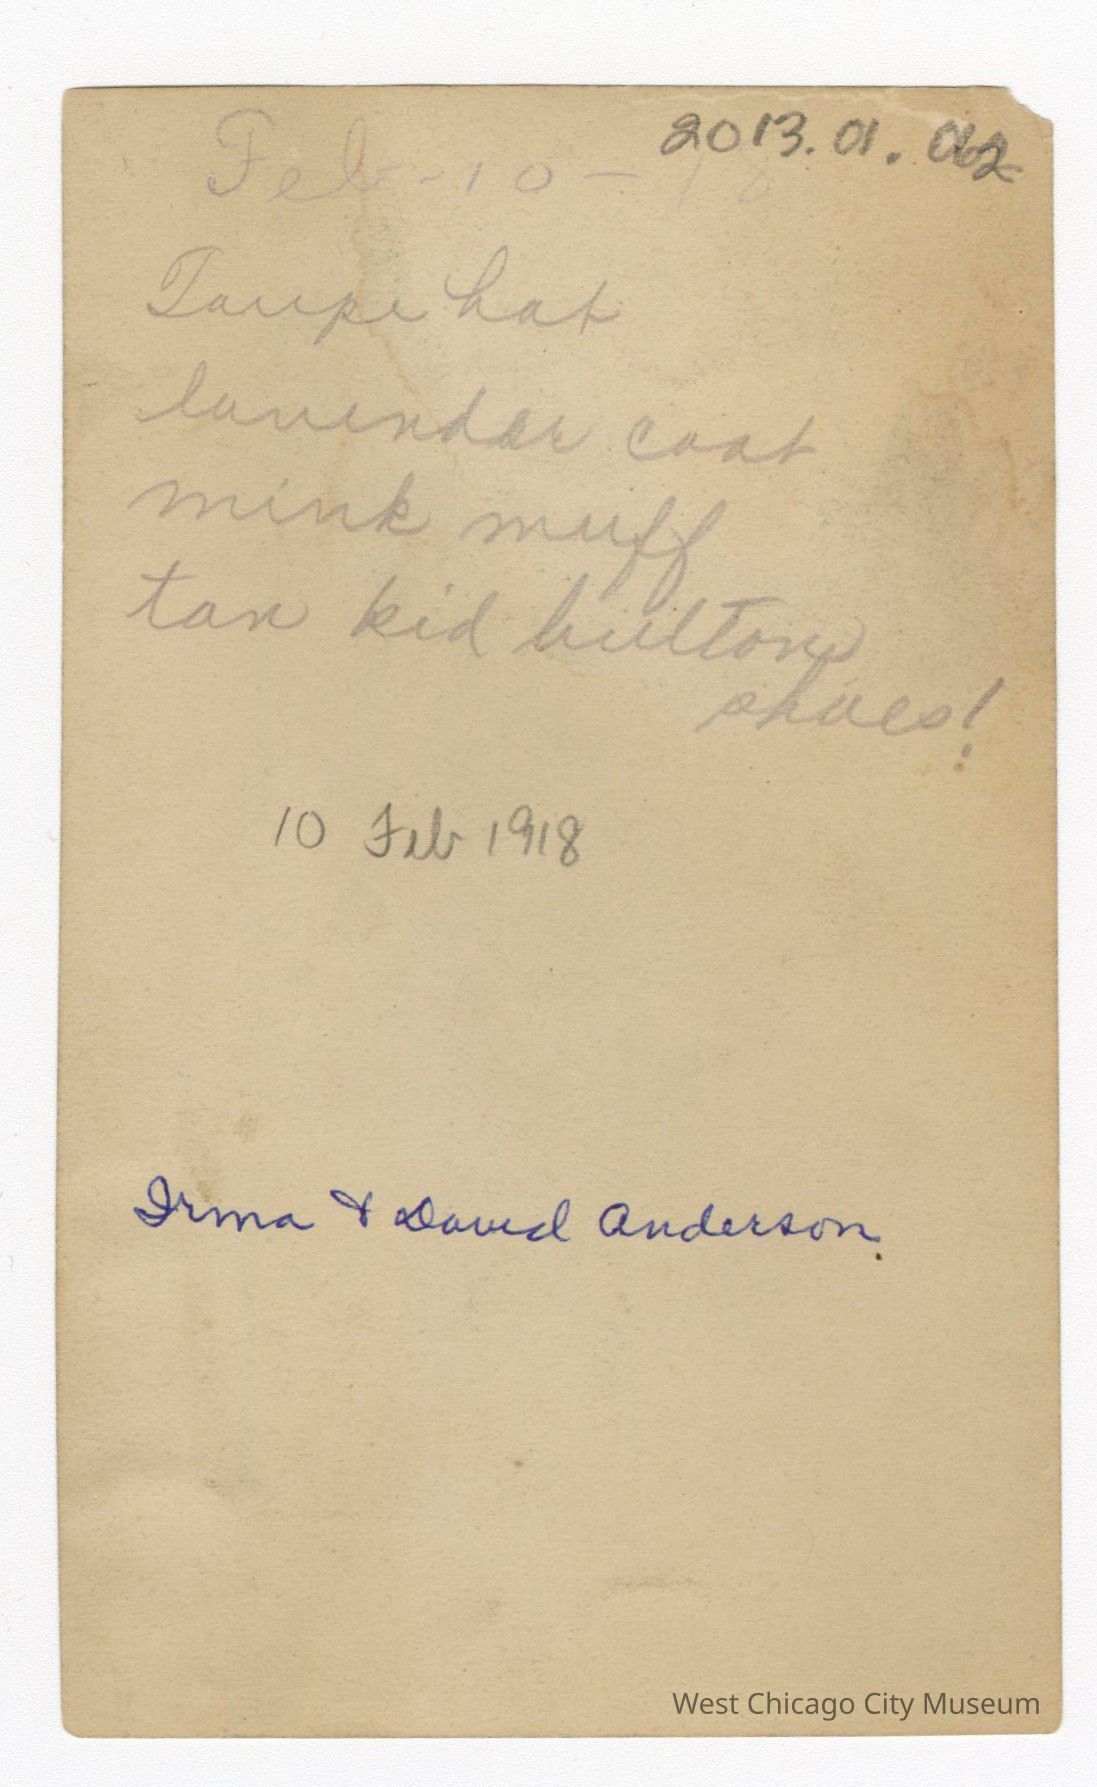 2013.01.
Feb-10-18
Taupe hat
lavender coat
mink muff
tan kid button
shoes!
10 Feb 1918
Irma & David Anderson.
West Chicago City Museum